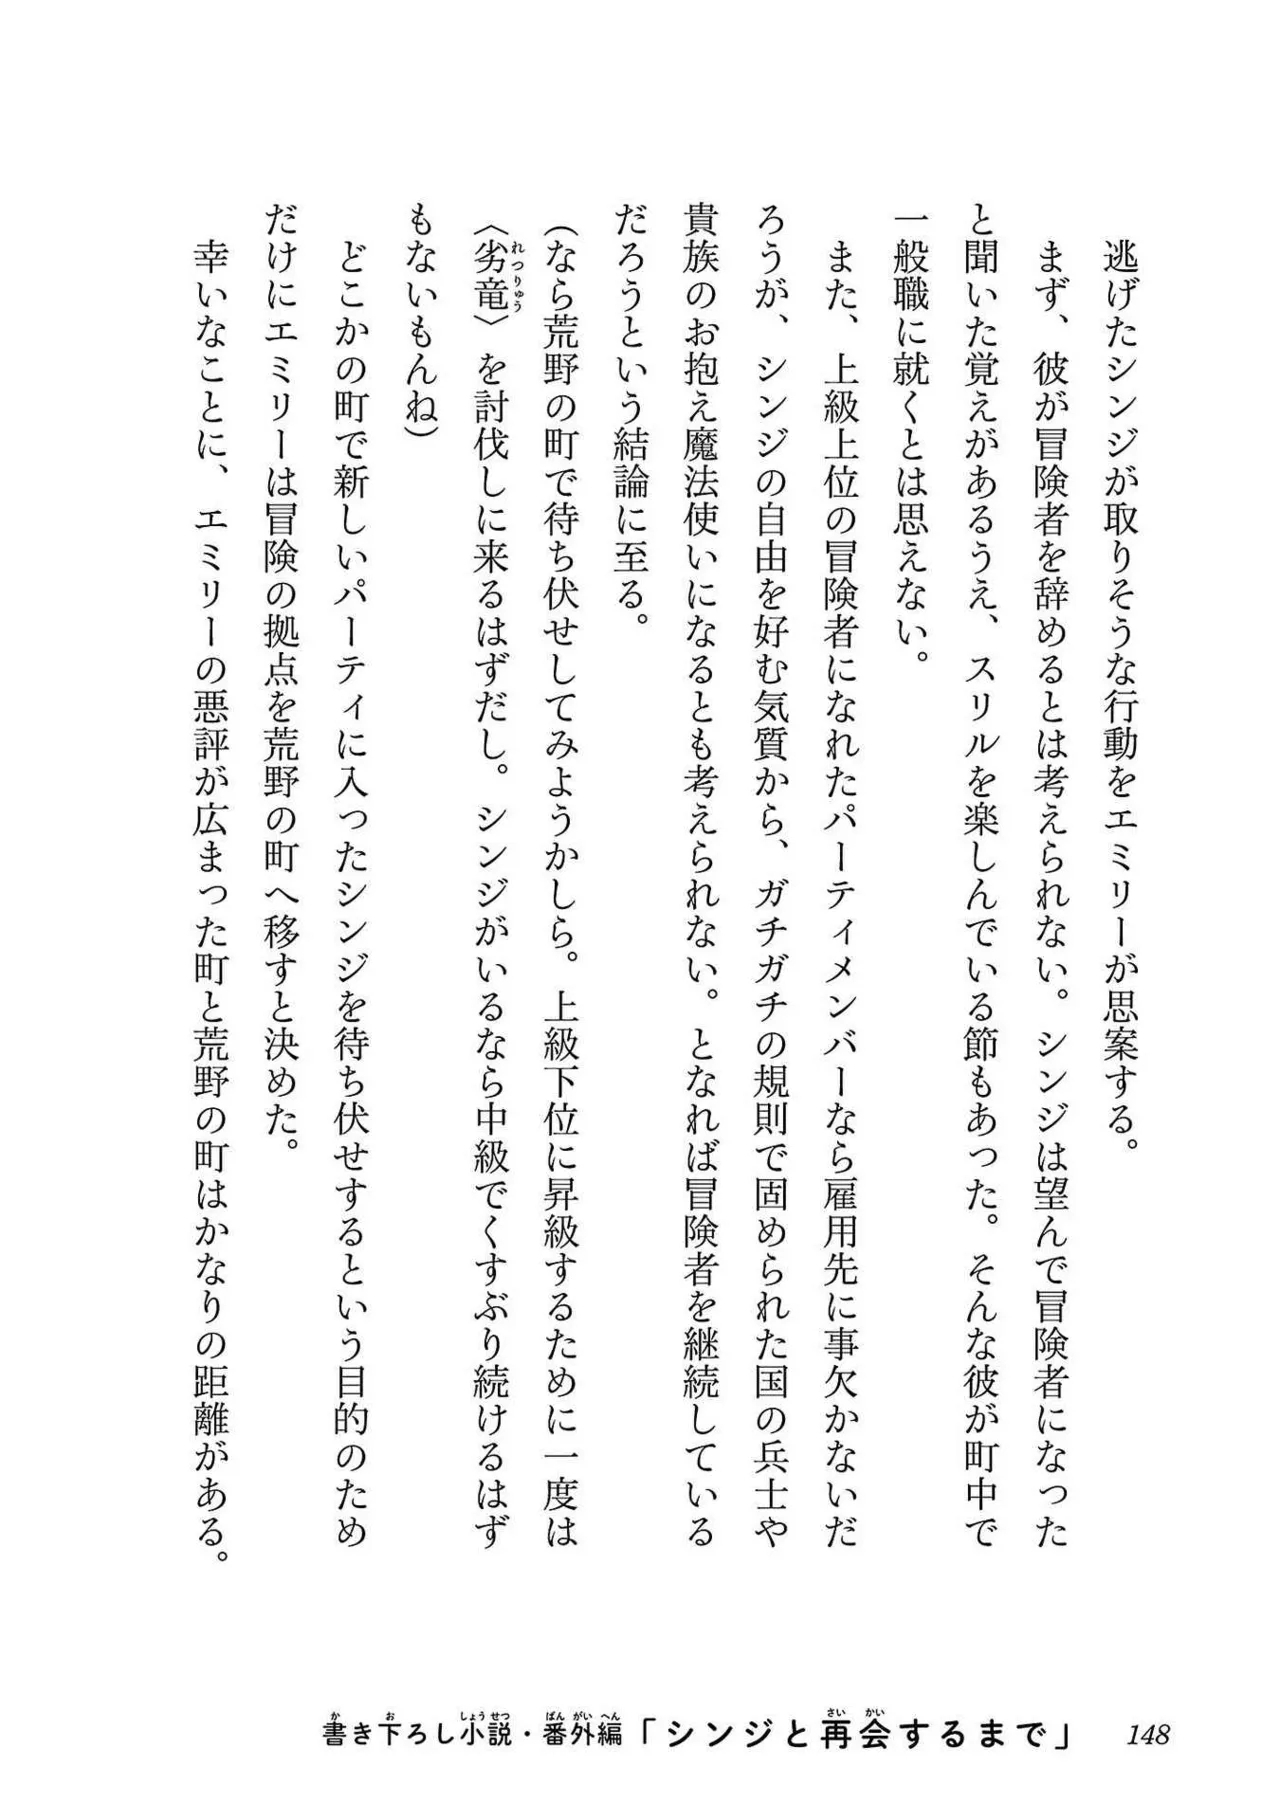 逃げたシンジが取りそうな行動をエミリーが思案する。
まず、彼が冒険者を辞めるとは考えられない。シンジは望んで冒険者になった
と聞いた覚えがあるうえ、スリルを楽しんでいる節もあった。そんな彼が町中で
一般職に就くとは思えない。
また、上級上位の冒険者になれたパーティメンバーなら雇用先に事欠かないだ
ろうが、シンジの自由を好む気質から、ガチガチの規則で固められた国の兵士や
貴族のお抱え魔法使いになるとも考えられない。となれば冒険者を継続している
だろうという結論に至る。
(なら荒野の町で待ち伏せしてみようかしら。上級下位に昇級するために一度は
〈劣竜〉を討伐しに来るはずだし。シンジがいるなら中級でくすぶり続けるはず
れつりゅう
もないもんね)
どこかの町で新しいパーティに入ったシンジを待ち伏せするという目的のため
だけにエミリーは冒険の拠点を荒野の町へ移すと決めた。
幸いなことに、エミリーの悪評が広まった町と荒野の町はかなりの距離がある。
か お しょうせつ ばんがいへん さいかい
書き下ろし小説・番外編「シンジと再会するまで」 148